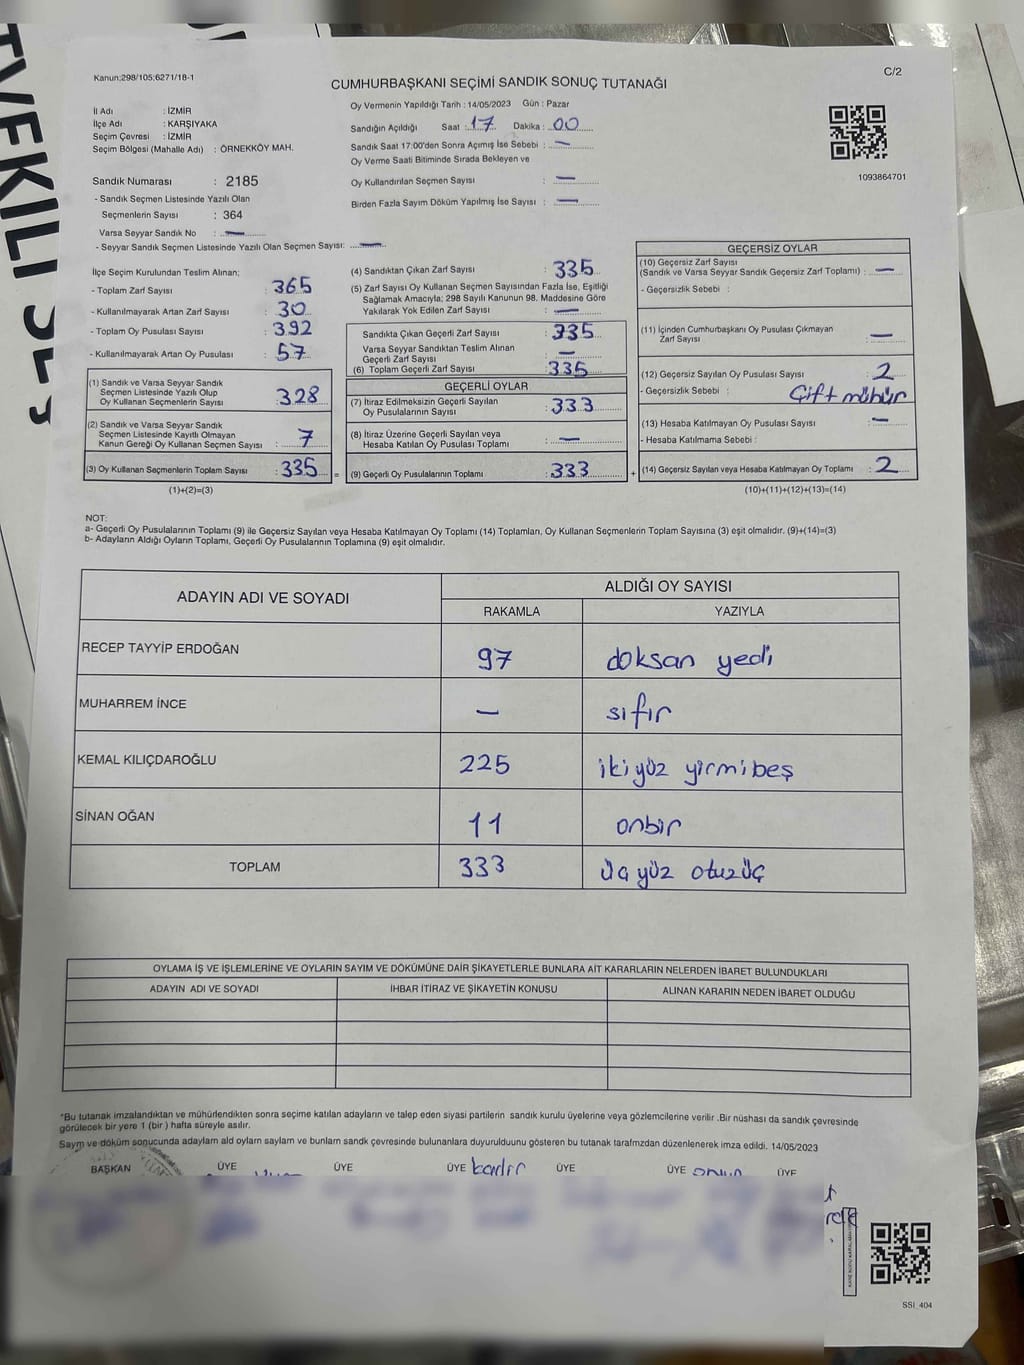 TVEKİLİ SEÇ
Kanun:298/105;6271/18-1
C/2
CUMHURBAŞKANI SEÇİMİ SANDIK SONUÇ TUTANAĞI
İl Adı : İZMİR
İlçe Adı : KARŞIYAKA
Seçim Çevresi : İZMİR
Seçim Bölgesi (Mahalle Adı) : ÖRNEKKÖY MAH.
Sandık Numarası : 2185
- Sandık Seçmen Listesinde Yazılı Olan
Seçmenlerin Sayısı : 364
Varsa Seyyar Sandık No : —
- Seyyar Sandık Seçmen Listesinde Yazılı Olan Seçmen Sayısı: —
Oy Vermenin Yapıldığı Tarih : 14/05/2023 Gün : Pazar
Sandığın Açıldığı Saat : 17 Dakika : 00
Sandık Saat 17:00'den Sonra Açımış İse Sebebi : —
Oy Verme Saati Bitiminde Sırada Bekleyen ve
Oy Kullandırılan Seçmen Sayısı : —
Birden Fazla Sayım Döküm Yapılmış İse Sayısı : —
1093864701
İlçe Seçim Kurulundan Teslim Alınan;
- Toplam Zarf Sayısı : 365
- Kullanılmayarak Artan Zarf Sayısı : 30
- Toplam Oy Pusulası Sayısı : 392
- Kullanılmayarak Artan Oy Pusulası : 57
(1) Sandık ve Varsa Seyyar Sandık
Seçmen Listesinde Yazılı Olup
Oy Kullanan Seçmenlerin Sayısı : 328
(2) Sandık ve Varsa Seyyar Sandık
Seçmen Listesinde Kayıtlı Olmayan
Kanun Gereği Oy Kullanan Seçmen Sayısı : 7
(3) Oy Kullanan Seçmenlerin Toplam Sayısı : 335 =
(1)+(2)=(3)
(4) Sandıktan Çıkan Zarf Sayısı : 335
(5) Zarf Sayısı Oy Kullanan Seçmen Sayısından Fazla İse, Eşitliği
Sağlamak Amacıyla; 298 Sayılı Kanunun 98. Maddesine Göre
Yakılarak Yok Edilen Zarf Sayısı : —
Sandıkta Çıkan Geçerli Zarf Sayısı : 335
Varsa Seyyar Sandıktan Teslim Alınan
Geçerli Zarf Sayısı : —
(6) Toplam Geçerli Zarf Sayısı : 335
GEÇERLİ OYLAR
(7) İtiraz Edilmeksizin Geçerli Sayılan
Oy Pusulalarının Sayısı : 333
(8) İtiraz Üzerine Geçerli Sayılan veya
Hesaba Katılan Oy Pusulası Toplamı : —
(9) Geçerli Oy Pusulalarının Toplamı : 333 +
GEÇERSİZ OYLAR
(10) Geçersiz Zarf Sayısı
(Sandık ve Varsa Seyyar Sandık Geçersiz Zarf Toplamı) : —
- Geçersizlik Sebebi :
(11) İçinden Cumhurbaşkanı Oy Pusulası Çıkmayan
Zarf Sayısı : —
(12) Geçersiz Sayılan Oy Pusulası Sayısı : 2
- Geçersizlik Sebebi : Çift mühür
(13) Hesaba Katılmayan Oy Pusulası Sayısı : —
- Hesaba Katılmama Sebebi :
(14) Geçersiz Sayılan veya Hesaba Katılmayan Oy Toplamı : 2
(10)+(11)+(12)+(13)=(14)
NOT:
a- Geçerli Oy Pusulalarının Toplamı (9) ile Geçersiz Sayılan veya Hesaba Katılmayan Oy Toplamı (14) Toplamları, Oy Kullanan Seçmenlerin Toplam Sayısına (3) eşit olmalıdır. (9)+(14)=(3)
b- Adayların Aldığı Oyların Toplamı, Geçerli Oy Pusulalarının Toplamına (9) eşit olmalıdır.
ADAYIN ADI VE SOYADI
ALDIĞI OY SAYISI
RAKAMLA YAZIYLA
RECEP TAYYİP ERDOĞAN 97 doksan yedi
MUHARREM İNCE — sıfır
KEMAL KILIÇDAROĞLU 225 ikiyüz yirmibeş
SİNAN OĞAN 11 onbir
TOPLAM 333 üçyüz otuzüç
OYLAMA İŞ VE İŞLEMLERİNE VE OYLARIN SAYIM VE DÖKÜMÜNE DAİR ŞİKAYETLERLE BUNLARA AİT KARARLARIN NELERDEN İBARET BULUNDUKLARI
ADAYIN ADI VE SOYADI İHBAR İTİRAZ VE ŞİKAYETİN KONUSU ALINAN KARARIN NEDEN İBARET OLDUĞU
*Bu tutanak imzalandıktan ve mühürlendikten sonra seçime katılan adayların ve talep eden siyasi partilerin sandık kurulu üyelerine veya gözlemcilerine verilir .Bir nüshası da sandık çevresinde
görülecek bir yere 1 (bir ) hafta süreyle asılır.
Saym ve döküm sonucunda adaylarn ald oylarn saylam ve bunlam sandk çevresinde bulunanlara duyurulduunu gösteren bu tutanak tarafmzdan düzenlenerek imza edildi. 14/05/2023
BAŞKAN ÜYE ÜYE ÜYE kadir ÜYE ÜYE ÜYE
SSI_404